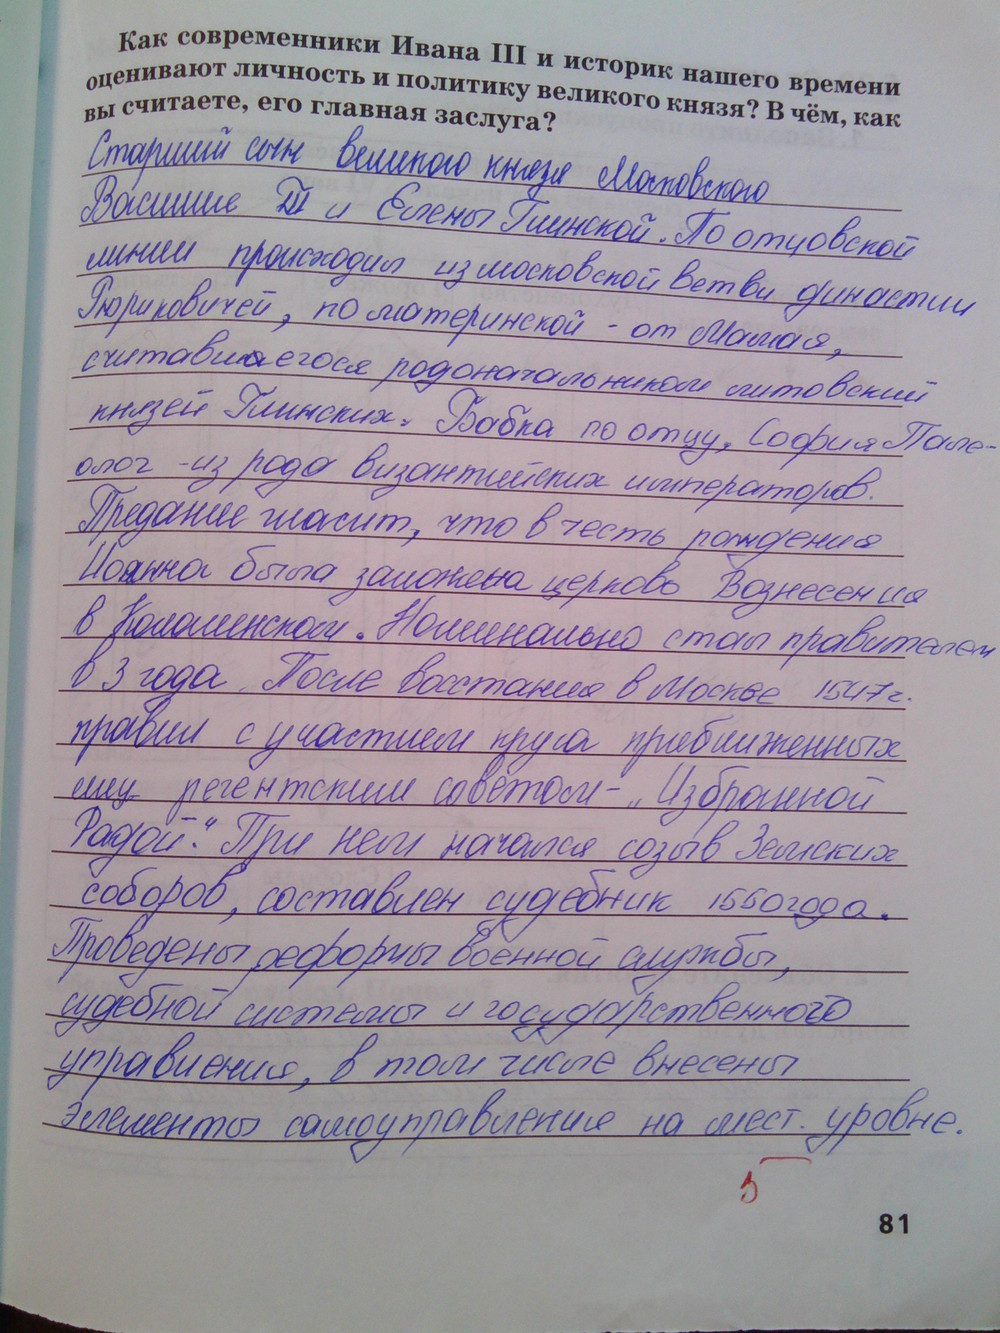 Как современники Ивана III и историк нашего времени
оценивают личность и политику великого князя? В чём, как
вы считаете, его главная заслуга?
Старший сын великого князя Московского
Василие III и Елены Глинской. По отцовской
линии происходил из московской ветви династии
Рюриковичей, по материнской - от Мамая,
считавшаегося родоначальником литовский
князей Глинских. Бабка по отцу, София Пале-
олог - из рода византийских императоров.
Предание гласит, что в честь рождения
Иоанна была заложена церковь Вознесения
в Коломенском. Номинально стал правителем
в 3 года. После восстания в Москве 1547 г.
правил с участием круга приближенных
ему регентским советом - „Избранной
Радой". При нем начался созыв Земских
соборов, составлен судебник 1550 года.
Проведены реформы военной службы,
судебной системы и государственного
управления, в том числе внесены
элементы самоуправления на мест. уровне.
5
81